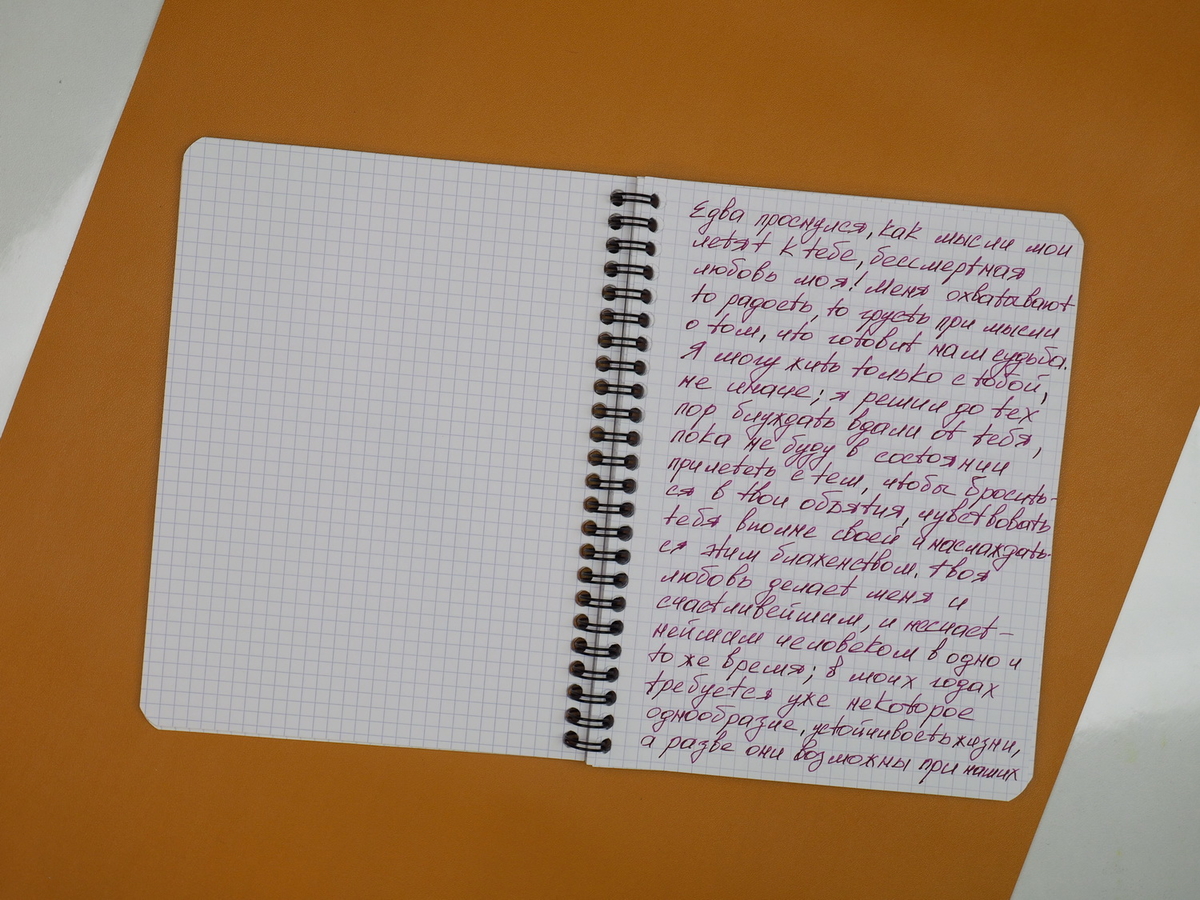 Едва проснулся, как мысли мои
летят к тебе, бессмертная
любовь моя! Меня охватывают
то радость, то грусть при мысли
о том, что готовит нам судьба.
Я могу жить только с тобой,
не иначе; я решил до тех
пор блуждать вдали от тебя,
пока не буду в состоянии
прилететь с тем, чтобы бросить-
ся в твои объятия, чувствовать
тебя вполне своей и наслаждать-
ся этим блаженством. Твоя
любовь делает меня и
счастливейшим, и несчаст-
нейшим человеком в одно и
то же время; в моих годах
требуется уже некоторое
однообразие, устойчивость жизни,
а разве они возможны при наших